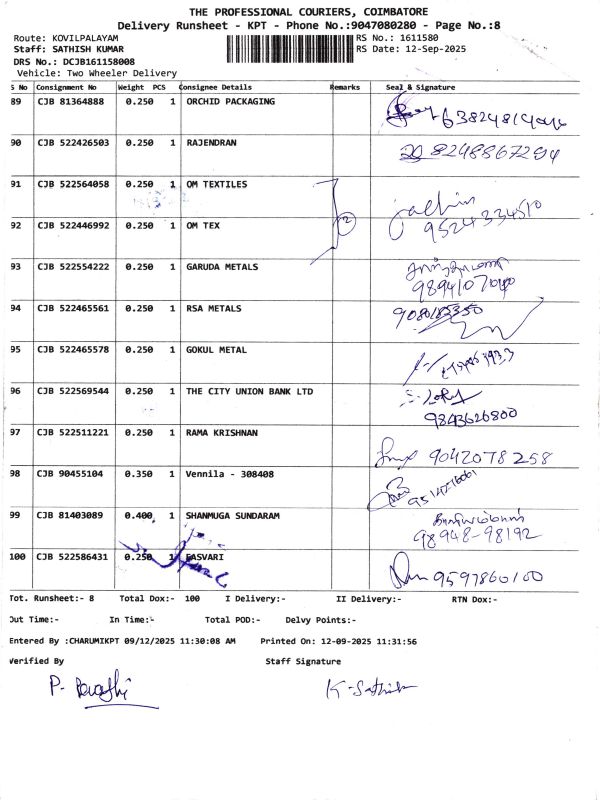 THE PROFESSIONAL COURIERS, COIMBATORE
Delivery Runsheet - KPT - Phone No.:9047080280 - Page No.:8
Route: KOVILPALAYAM RS No.: 1611580
Staff: SATHISH KUMAR RS Date: 12-Sep-2025
DRS No.: DCJB161158008
Vehicle: Two Wheeler Delivery
S No Consignment No Weight PCS Consignee Details Remarks Seal & Signature
89 CJB 81364888 0.250 1 ORCHID PACKAGING
90 CJB 522426503 0.250 1 RAJENDRAN 8248867294
91 CJB 522564058 0.250 1 OM TEXTILES
92 CJB 522446992 0.250 1 OM TEX 2 9524334510
93 CJB 522554222 0.250 1 GARUDA METALS
94 CJB 522465561 0.250 1 RSA METALS
95 CJB 522465578 0.250 1 GOKUL METAL
96 CJB 522569544 0.250 1 THE CITY UNION BANK LTD 9843626800
97 CJB 522511221 0.250 1 RAMA KRISHNAN 9042078258
98 CJB 90455104 0.350 1 Vennila - 308408
99 CJB 81403089 0.400 1 SHANMUGA SUNDARAM 98948-98192
100 CJB 522586431 0.250 1 EASVARI 9597860100
Tot. Runsheet:- 8 Total Dox:- 100 I Delivery:- II Delivery:- RTN Dox:-
Out Time:- In Time:- Total POD:- Delvy Points:-
Entered By :CHARUMIKPT 09/12/2025 11:30:08 AM Printed On: 12-09-2025 11:31:56
Verified By Staff Signature
K-Sathish